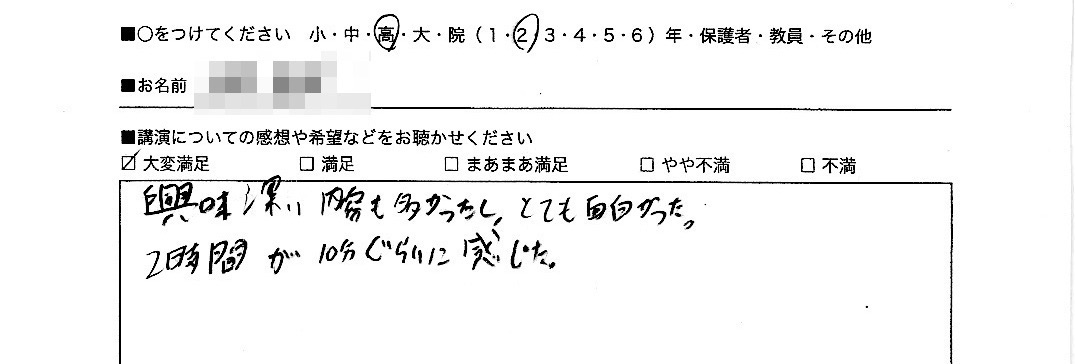 ■○をつけてください 小・中・高・大・院(1・2・3・4・5・6)年・保護者・教員・その他
■お名前
■講演についての感想や希望などをお聴かせください
☑ 大変満足 □ 満足 □ まあまあ満足 □ やや不満 □ 不満
興味深い内容も多かったし、とても面白かった。
2時間が10分ぐらいに感じた。